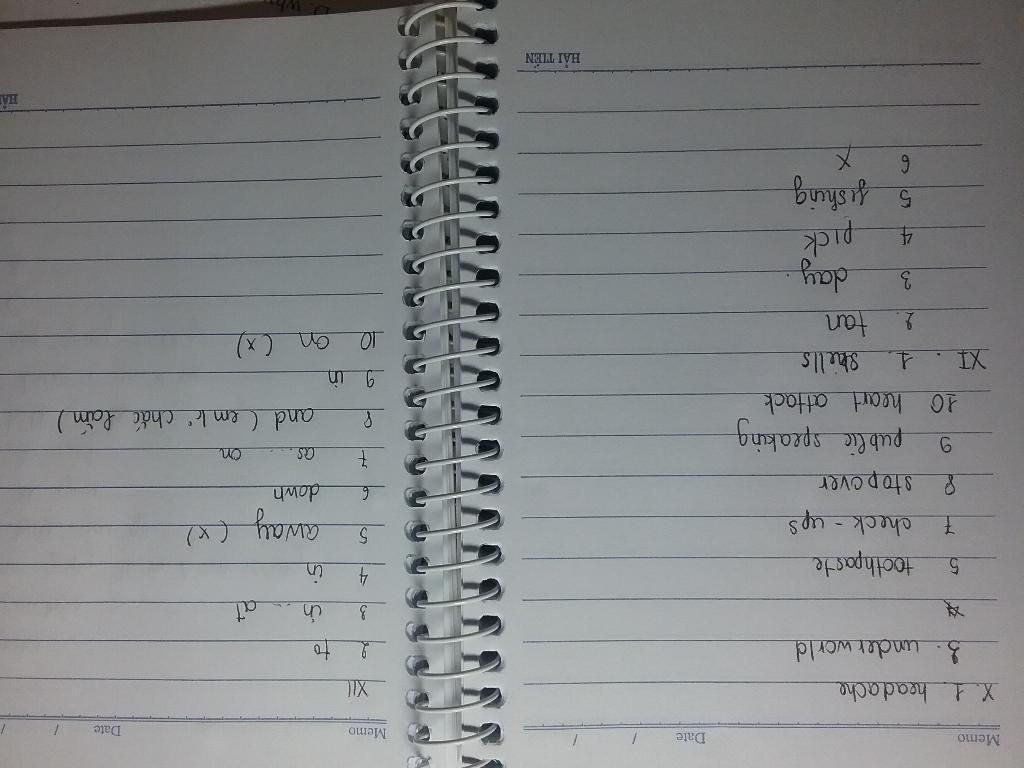 Memo Date / /
X. 1. headache
3. underworld
5 toothpaste
7 check-ups
8 stopover
9 public speaking
10 heart attack
XI. 1. skills
2. tan
3 day.
4 pick
5 fishing
6 X
HẢI TIẾN
Memo Date / /
XII
2 to
3 in ... at
4 in
5 away (x)
6 down
7 as .... on
8 and (em k° chắc lắm)
9 in
10 on (x)